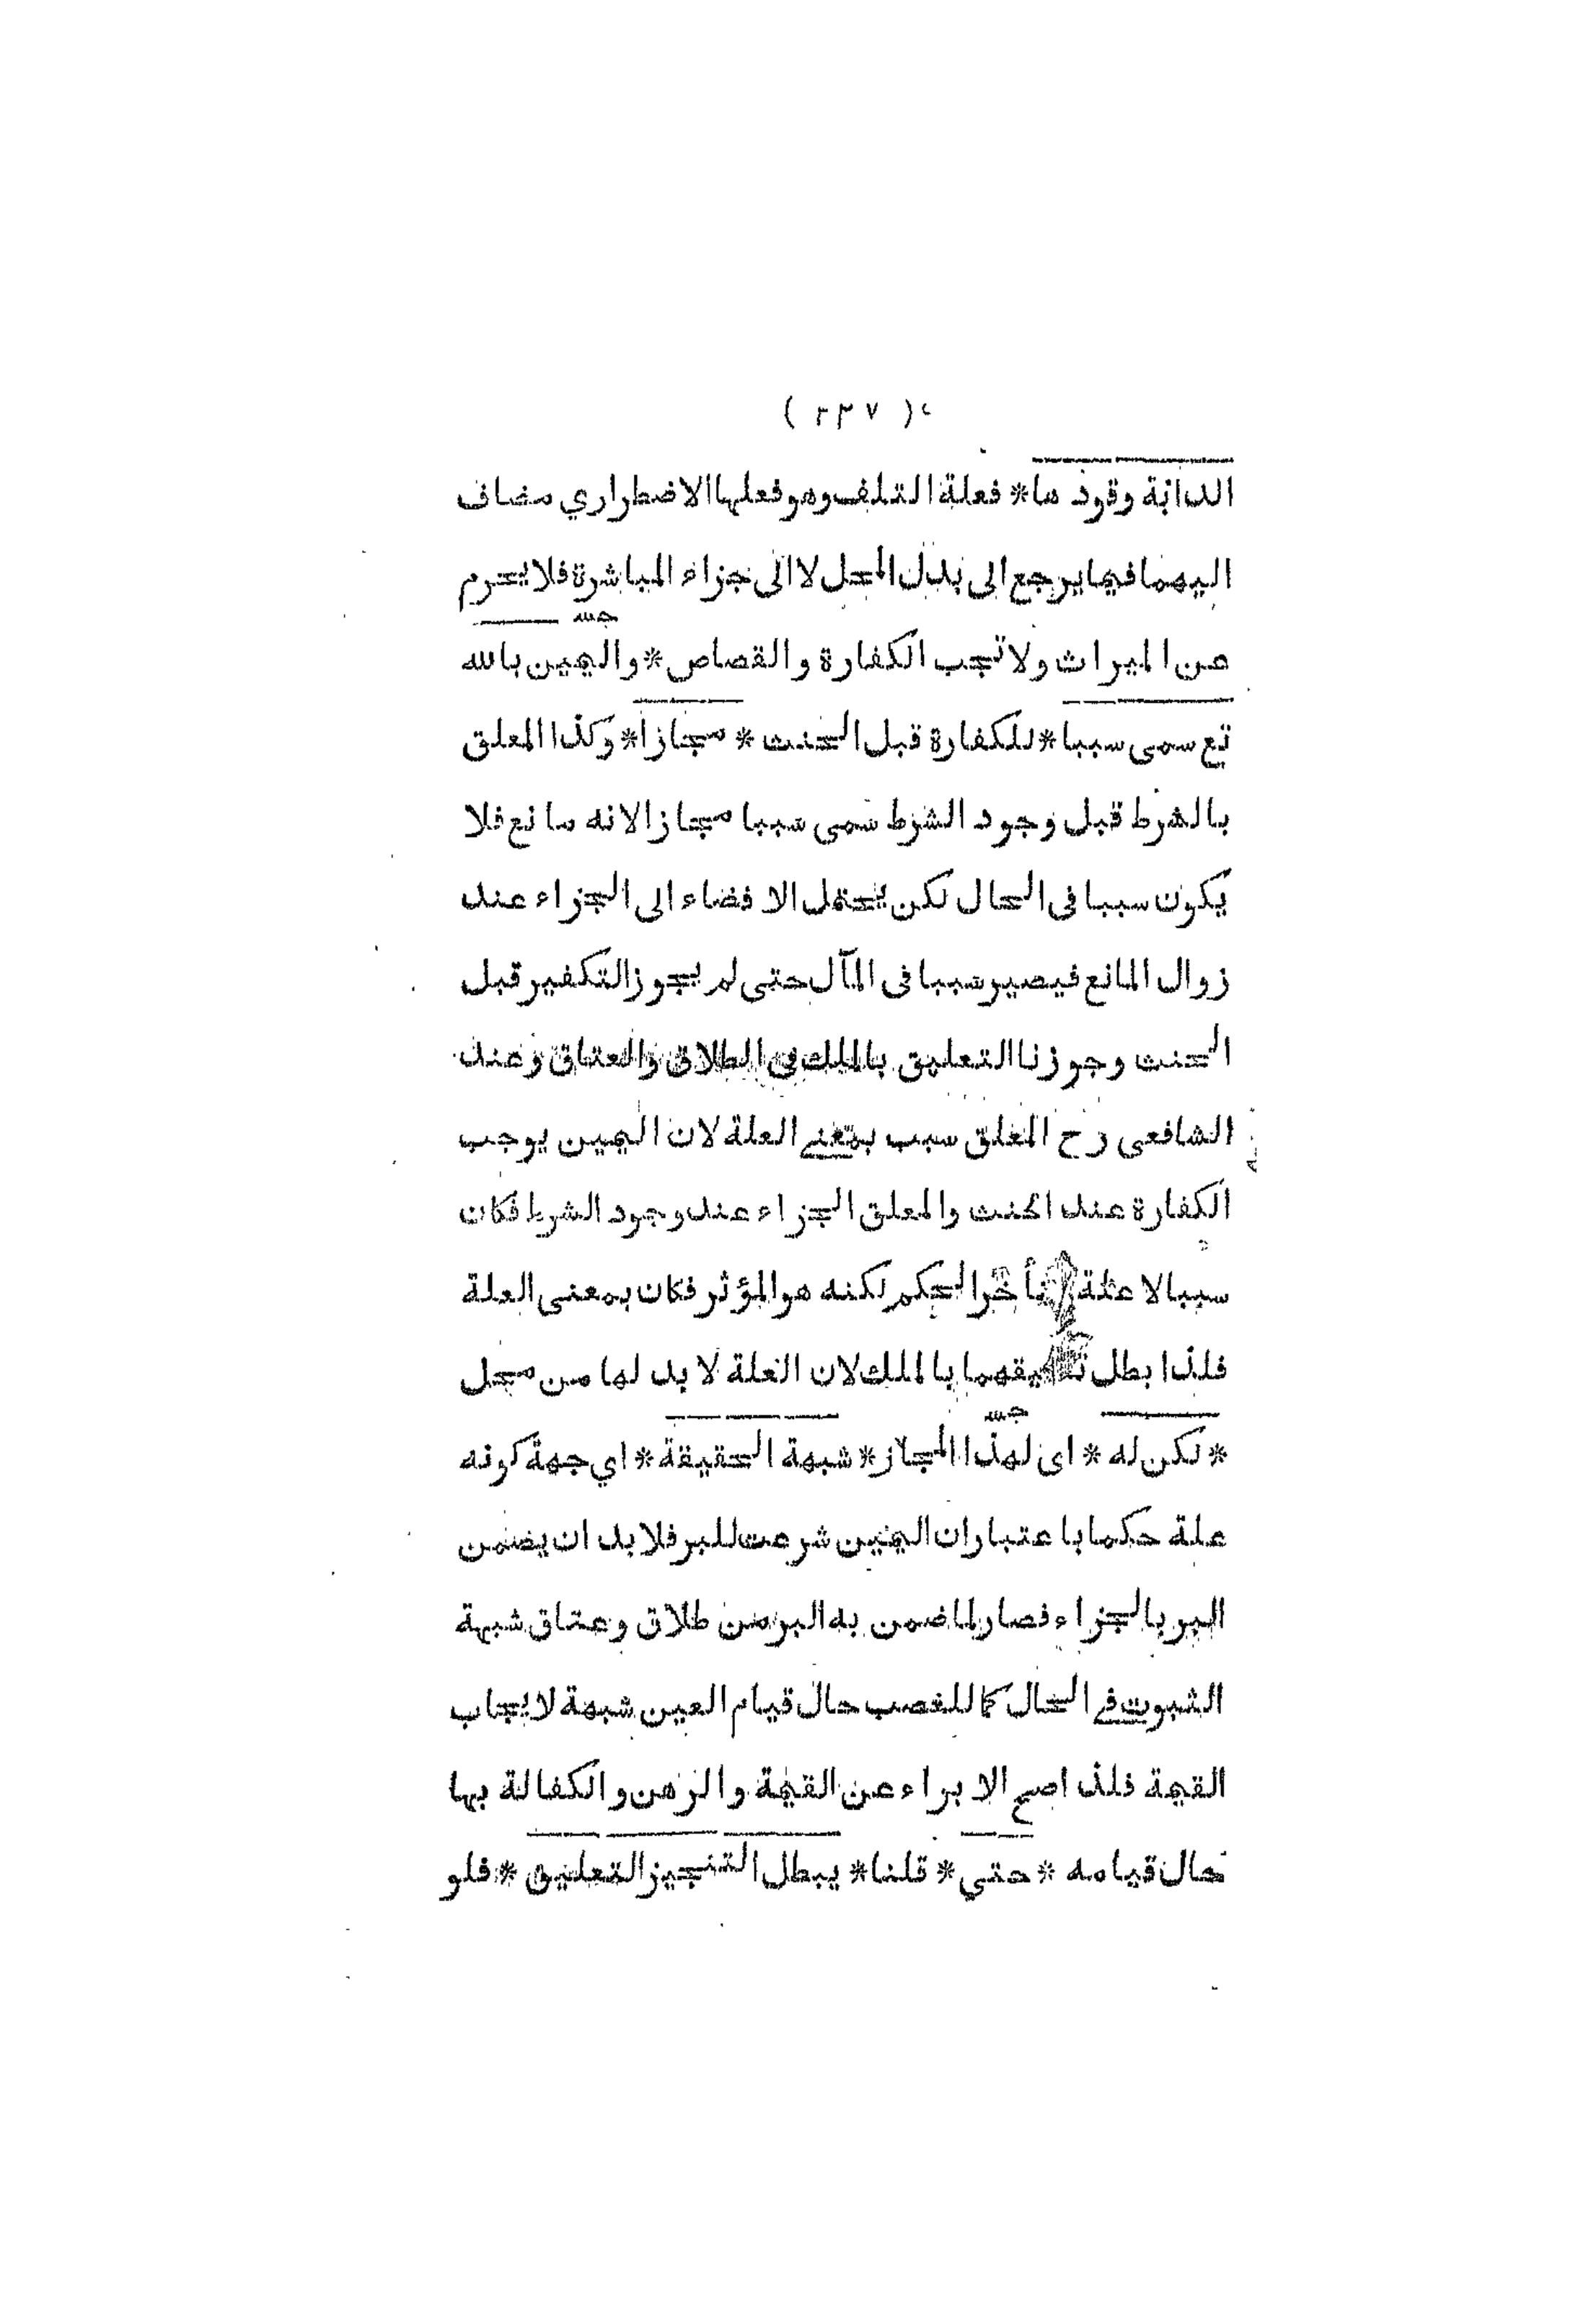 ( ٢٣٧ )
الدابة وقود ها * فعلة التلف وهو فعلها الاضطراري مضاف
اليهما فيما يرجع الى بدل المحل لا الى جزاء المباشرة فلا يحرم
عن الميراث ولا تجب الكفارة والقصاص * واليمين بالله
تع سمى سببا * للكفارة قبل الحنث * مجازا * وكذا المعلق
بالشرط قبل وجود الشرط سمى سببا مجازا لانه مانع فلا
يكون سببا فى الحال لكن يحتمل الافضاء الى الجزاء عند
زوال المانع فيصير سببا فى المآل حتى لم يجوز التكفير قبل
الحنث وجوزنا التعليق بالملك فى الطلاق والعتاق وعند
الشافعى رح المعلق سبب بمعنے العلة لان اليمين يوجب
الكفارة عند الحنث والمعلق الجزاء عند وجود الشرط فكان
سببا لا علة تأخر الحكم لكنه هو المؤثر فكان بمعنى العلة
فلذا بطل تعليقهما بالملك لان العلة لا بد لها من محل
* لكن له * اى لهذا المجاز * شبهة الحقيقة * اي جهة كونه
علة حكما با عتبار ان اليمين شرعت للبر فلا بد ان يضمن
البر بالجزاء فصار لما ضمن به البر من طلاق وعتاق شبهة
الثبوت فے الحال كما للغصب حال قيام العين شبهة لايجاب
القيمة فلذا صح الابراء عن القيمة والرهن والكفالة بها
حال قيامه * حتي * قلنا * يبطل التنجيز التعليق * فلو